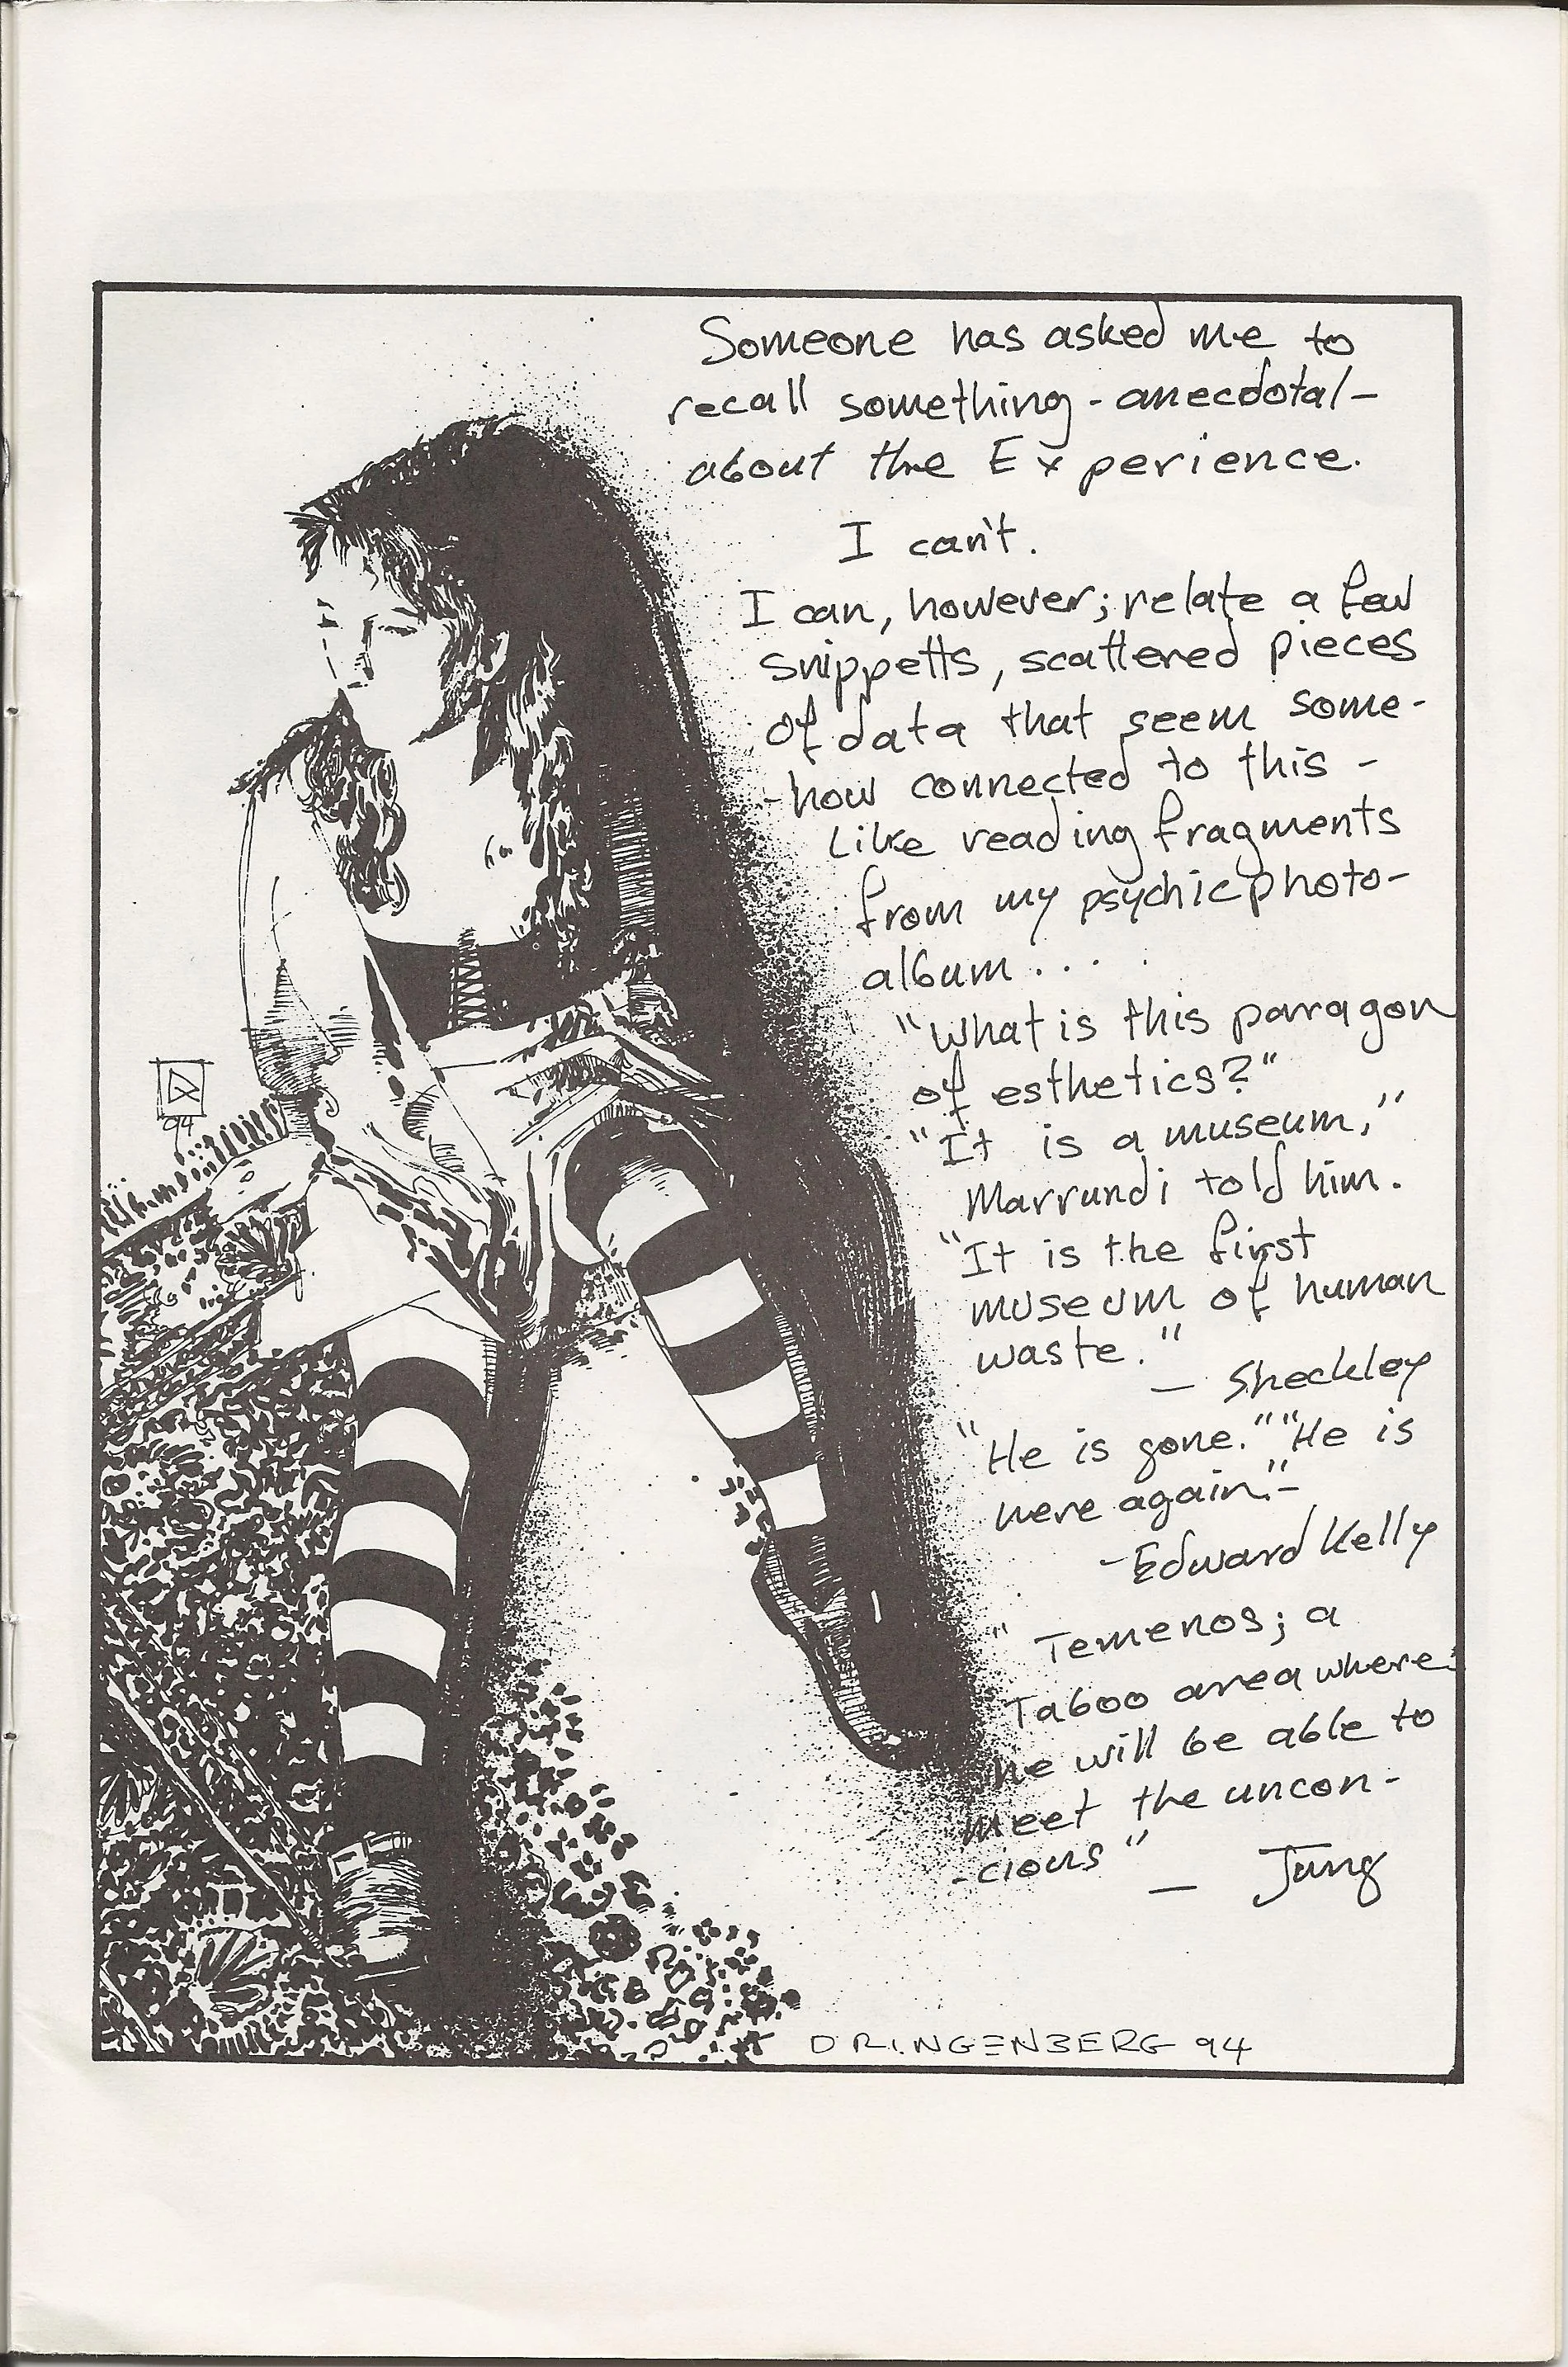 Someone has asked me to
recall something - anecdotal -
about the Experience.
I can't.
I can, however; relate a few
snippetts, scattered pieces
of data that seem some-
-how connected to this -
Like reading fragments
from my psychic photo-
album....
"What is this paragon
of esthetics?"
"It is a museum,"
Marrundi told him.
"It is the first
museum of human
waste."
— Sheckley
"He is gone." "He is
here again." -
- Edward Kelly
" Temenos; a
Taboo area where
he will be able to
meet the uncon-
-cious" — Jung
94
DRINGENBERG 94